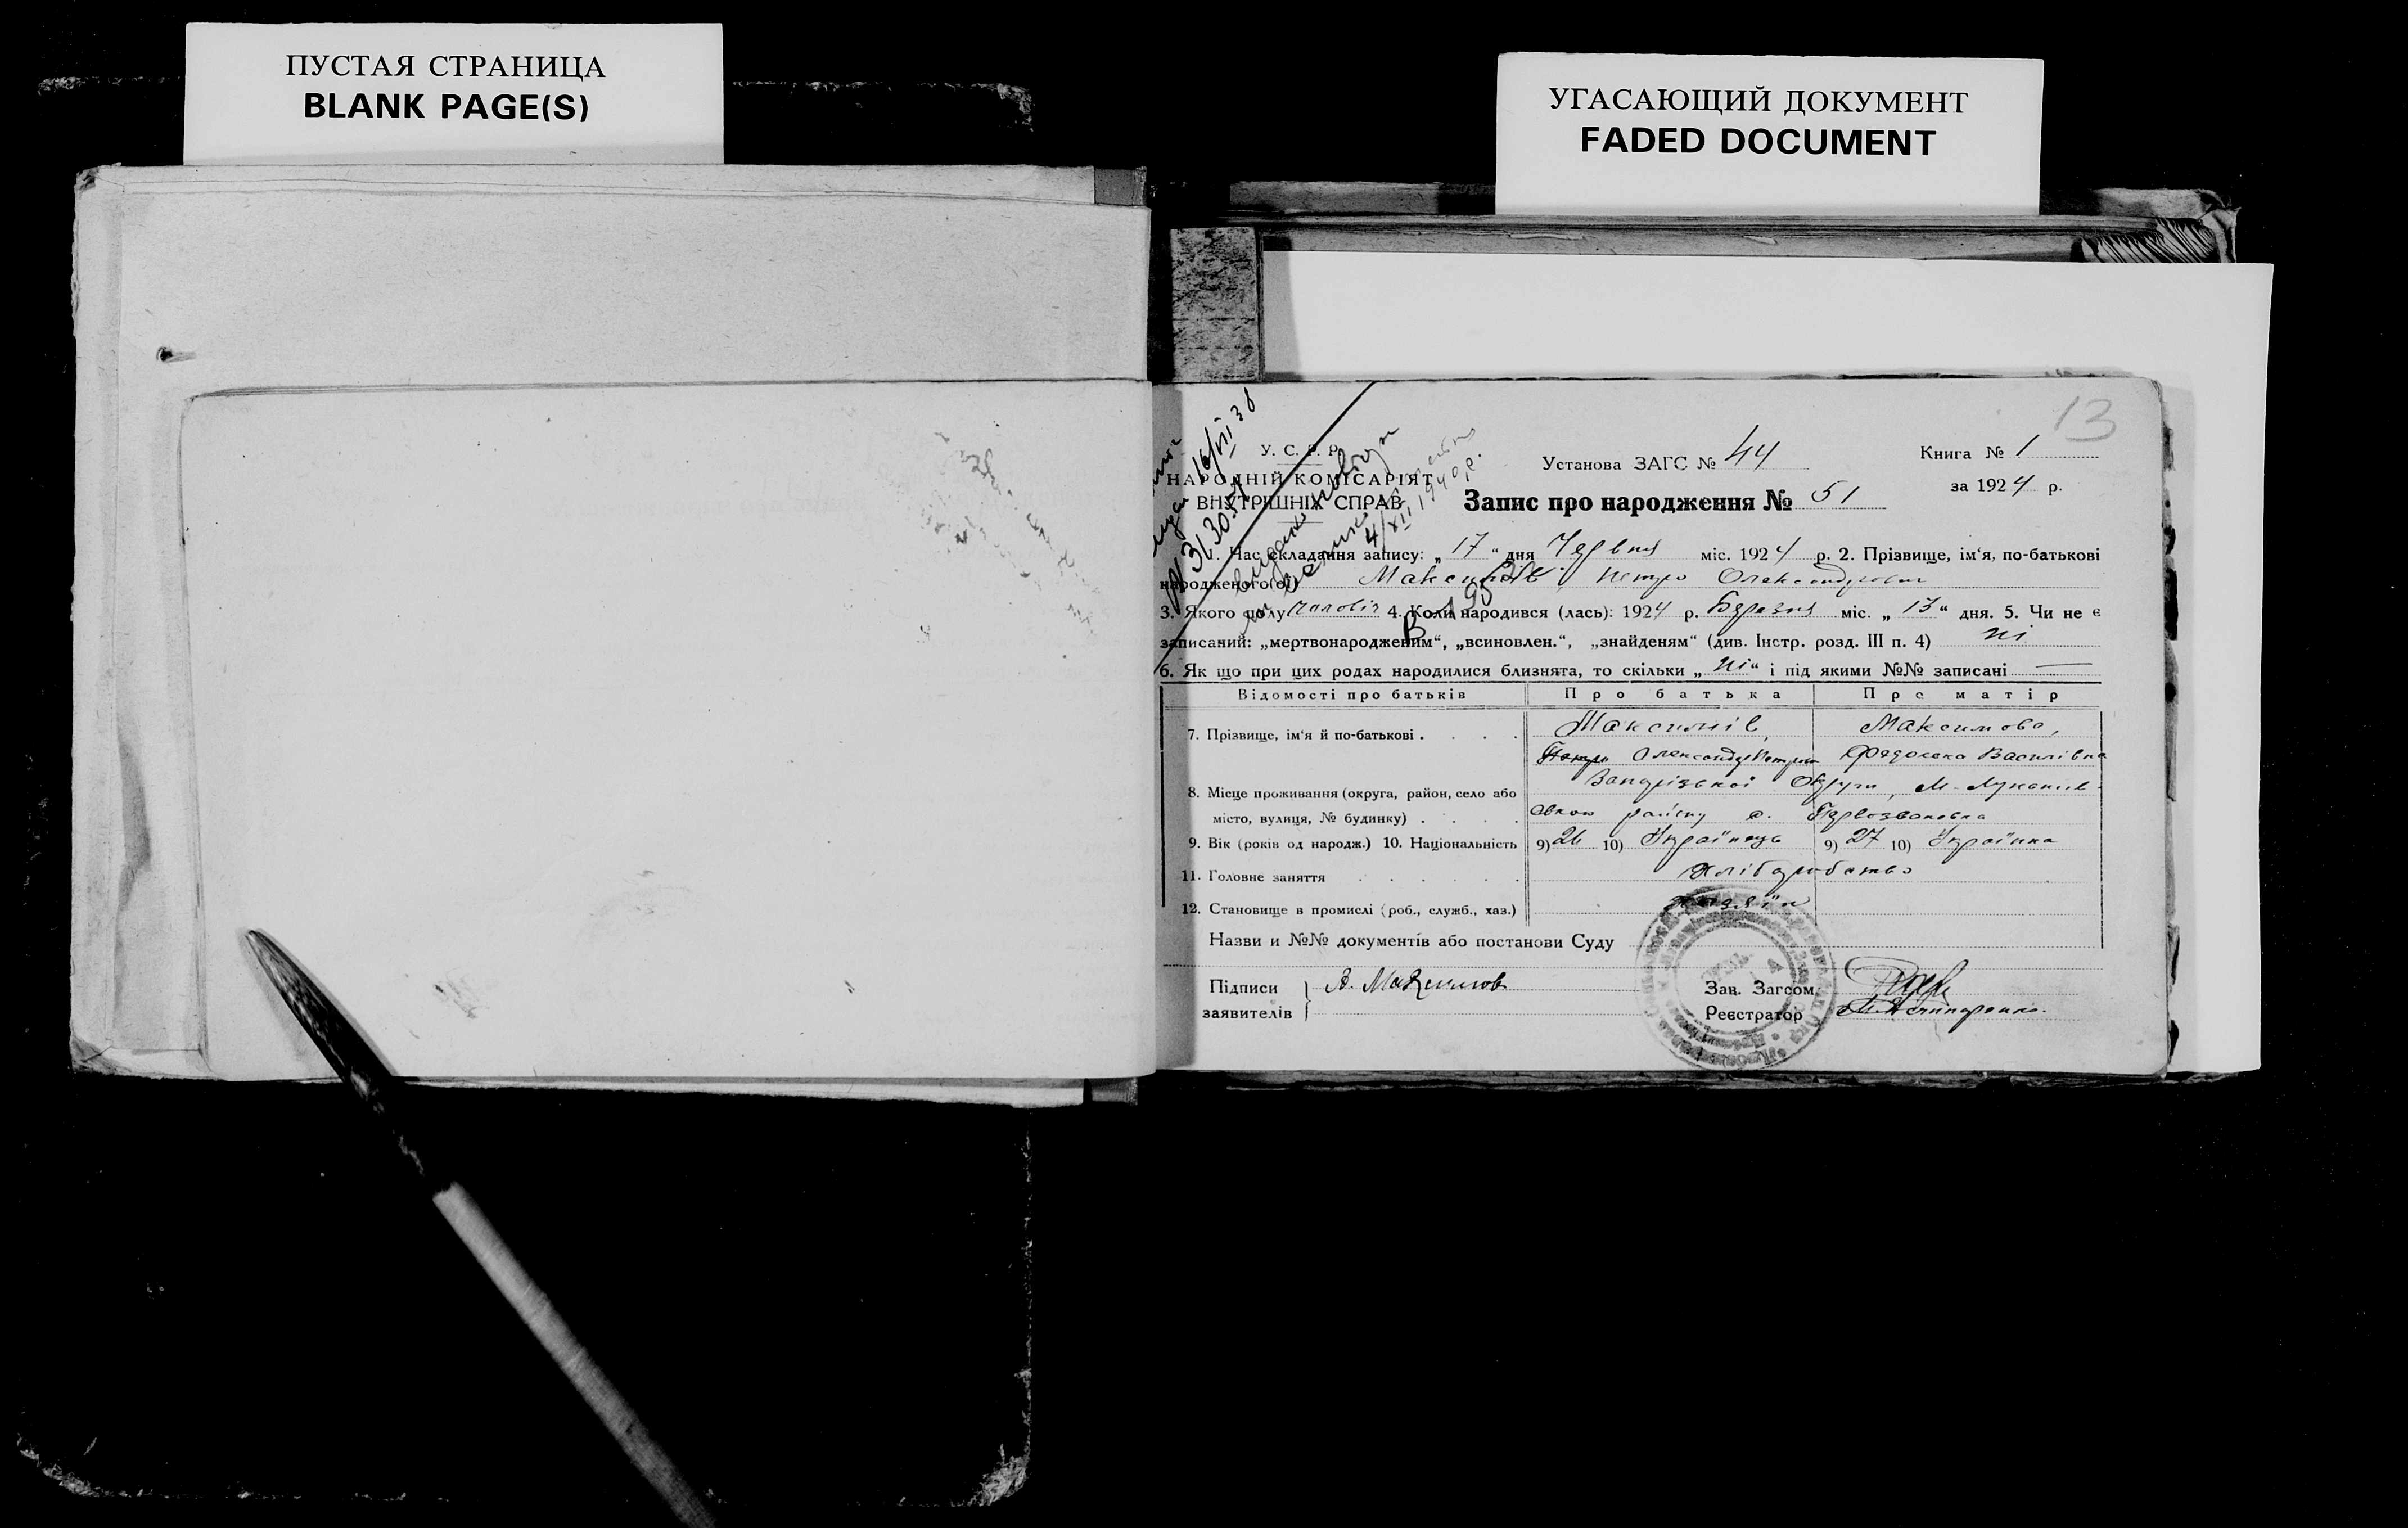 ПУСТАЯ СТРАНИЦА
BLANK PAGE(S)
УГАСАЮЩИЙ ДОКУМЕНТ
FADED DOCUMENT
13
У. С. Р. Р.
НАРОДНІЙ КОМІСАРІЯТ
ВНУТРІШНІХ СПРАВ
Установа ЗАГС № 44
Книга № 1
за 1924 р.
Запис про народження № 51
16/VII 38
4/XII 1940 р.
1. Час складання запису: „ 17 “ дня Червня міс. 1924 р. 2. Прізвище, ім‘я, по-батькові
народженого(ої) Максимів Петро Олександрович
3. Якого полу чоловіч 4. Коли народився (лась): 1924 р. Березня міс. „ 13 “ дня. 5. Чи не є
записаний: „мертвонародженим“, „всиновлен.“, „знайденям“ (див. Інстр. розд. III п. 4) ні
6. Як що при цих родах народилися близнята, то скільки „ ні “ і під якими №№ записані —
Відомості про батьків Про батька Про матір
7. Прізвище, ім‘я й по-батькові . . . . Максимів, Максимова,
Олександр Петров Федосека Василівна
8. Місце проживання (округа, район, село або Запорізької Округи, М-Лукашів-
місто, вулиця, № будинку) . . . . ського району с. Первозванівка
9. Вік (років од народж.) 10. Національність 9) 26 10) Українець 9) 27 10) Українка
11. Головне заняття . . . . . . Хліборобство
12. Становище в промислі (роб., служб., хаз.) Хазяїн
Назви и №№ документів або постанови Суду
Підписи А. Максимов
заявителів
Зав. Загсом
Реєстратор